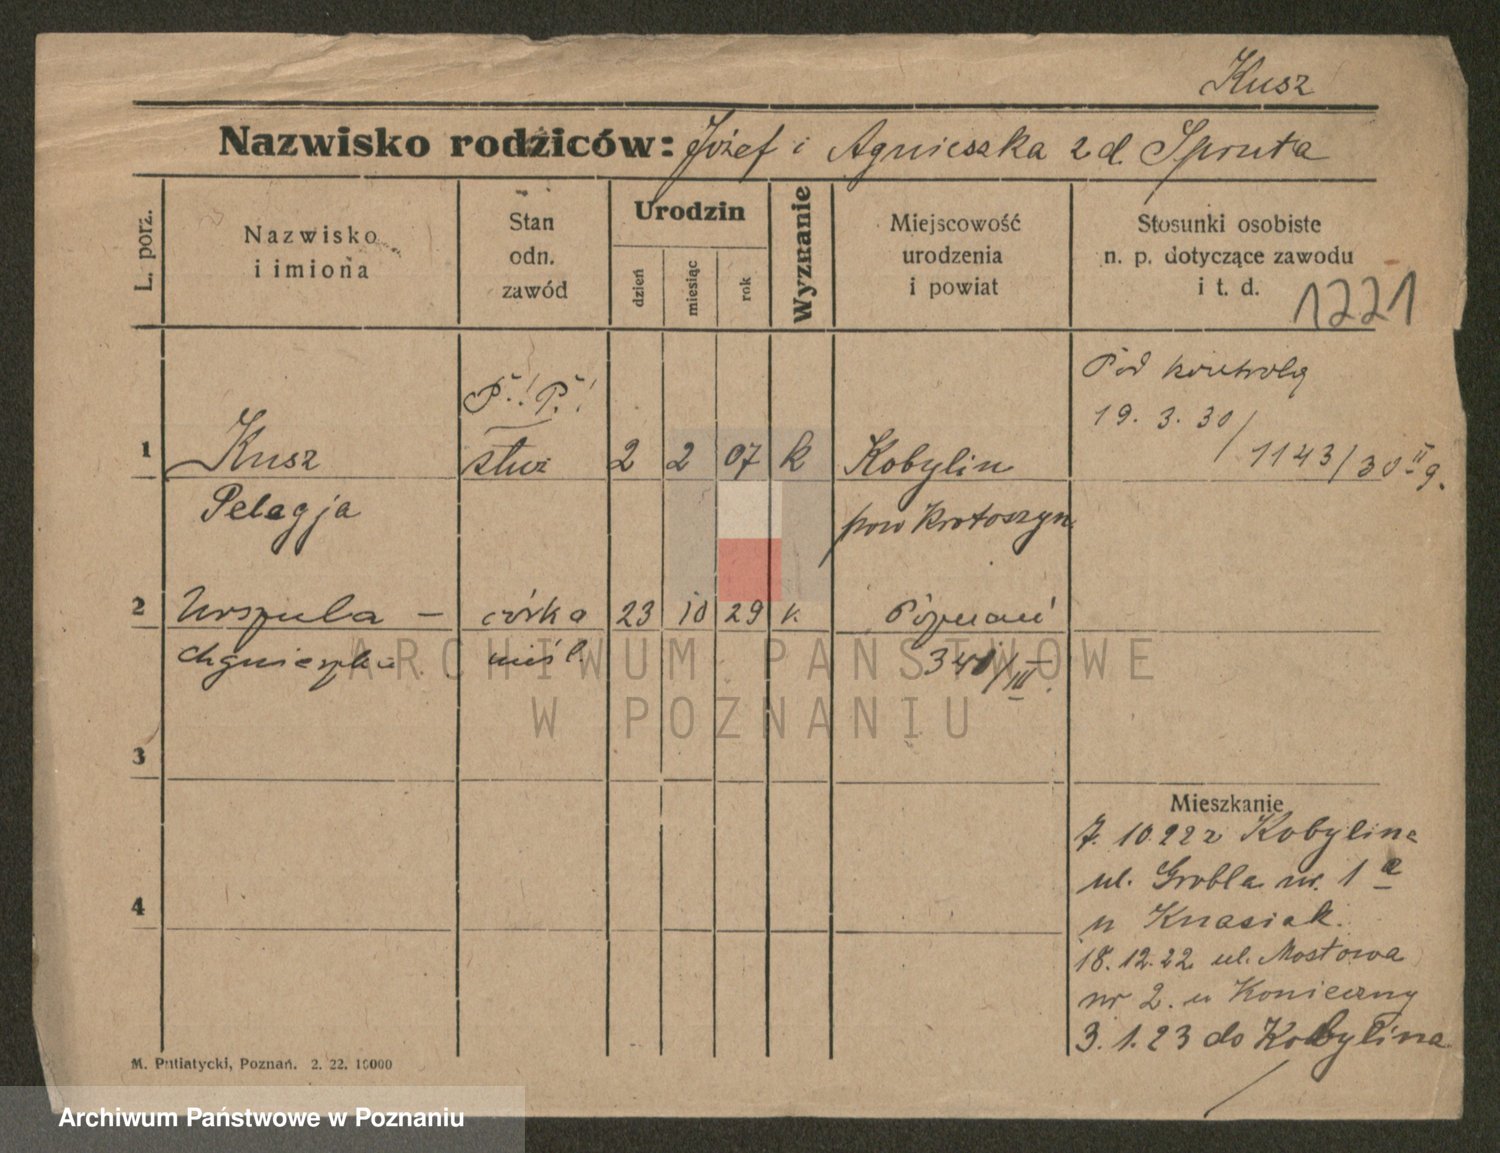 Kusz
Nazwisko rodziców: Józef i Agnieszka z d. Spruta
L. porz.
Nazwisko i imiona
Stan odn. zawód
Urodzin
dzień
miesiąc
rok
Wyznanie
Miejscowość urodzenia i powiat
Stosunki osobiste n. p. dotyczące zawodu i t. d.
1221
P.! P.!
Pod kontrolą
19. 3. 30 / 1143/30 II g.
1 Kusz służ 2 2 07 k Kobylin
Pelagja pow Krotoszyn
2 Urszula – córka 23 10 29 k. Poznań
Agnieszka nieśl. 341/III.
3
Mieszkanie
7. 10. 22 z Kobylina
4
ul. Grobla nr. 1 a
u Knasiak.
18. 12. 22 ul. Mostowa
nr 2. u Konieczny
3. 1. 23 do Kobylina
M. Putiatycki, Poznań. 2. 22. 10000
ARCHIWUM PAŃSTWOWE
W POZNANIU
Archiwum Państwowe w Poznaniu